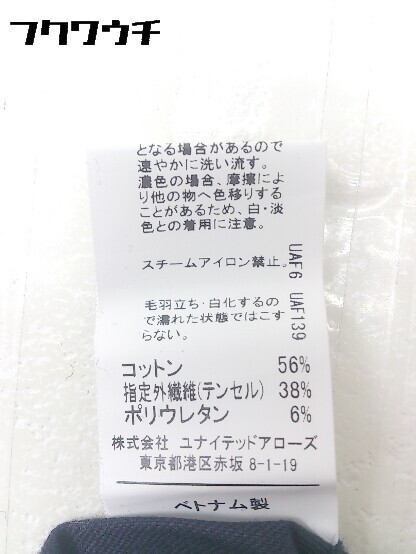 フクワウチ
となる場合があるので
速やかに洗い流す。
濃色の場合、摩擦によ
り他の物へ色移りする
ことがあるため、白・淡
色との着用に注意。
スチームアイロン禁止。
毛羽立ち・白化するの
で濡れた状態ではこす
らない。
UAF6 UAF139
コットン 56%
指定外繊維(テンセル) 38%
ポリウレタン 6%
株式会社 ユナイテッドアローズ
東京都港区赤坂 8-1-19
ベトナム製